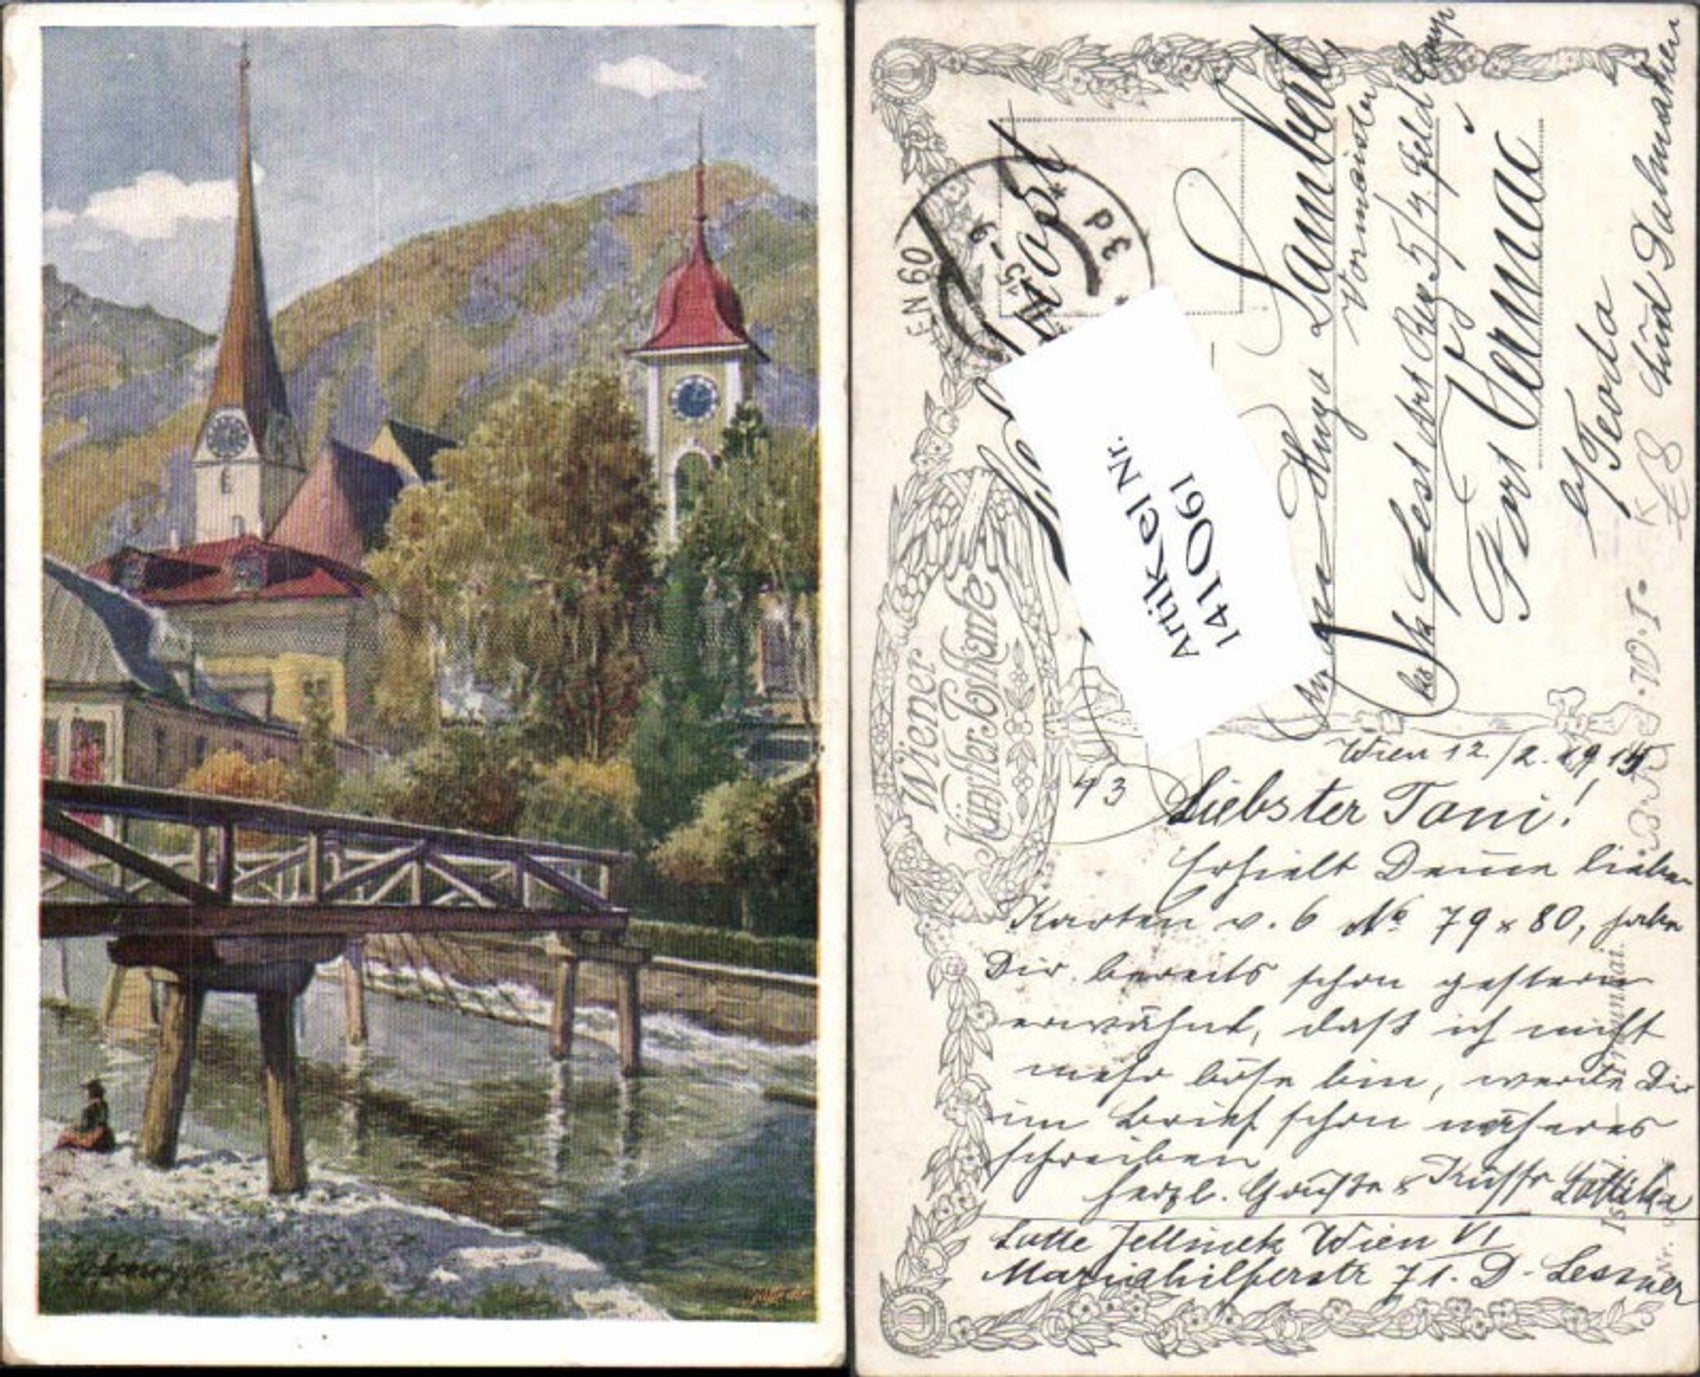 EN 60
3d
15–9
Wiener
Künstler Postkarte
Artikel Nr.
141061
Hugo Lambert,
Vormeister
k.k. Fest Art Reg 5/4 Feld Comp
Fort Vermač
b/ Teodo
Süd Dalmatien
B.K.W.I.
43
Wien 12./2. 1915
Liebster Toni!
Erhielt Deine lieben
Karten v. 6 No 79 x 80, habe
Dir bereits schon gestern
erwähnt, daß ich nicht
mehr böse bin, werde Dir
im Brief schon näheres
schreiben
herzl. Grüße & Küsse
Lotte Jellinek Wien VI
Mariahilferstr 71. D. Lessner